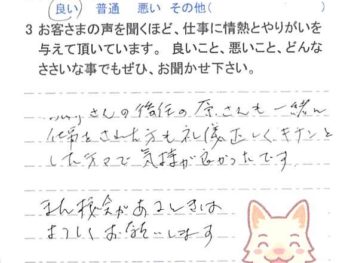 良い 普通 悪い その他(
3 お客さまの声を聞くほど、仕事に情熱とやりがいを
与えて頂いています。 良いこと、悪いこと、どんな
ささいな事でもぜひ、お聞かせ下さい。
さんの後任の原さんも一緒に
仕事をされた方も礼儀正しくキチンと
した方々で気持が良かったです
また機会があるときは
よろしくお願いします